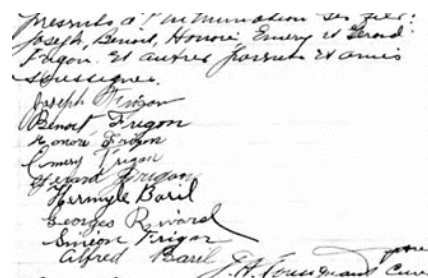 présents à l'inhumation ses fils:
Joseph, Benoit, Honoré, Emery et Gerard
Frigon. et autres parents et amis
soussignés.
Joseph Frigon
Benoit Frigon
Honoré Frigon
Emery Frigon
Gerard Frigon
Hermyle Baril
Georges Rivard
Siméon Frigon
Alfred Baril
J. H. ptre Curé